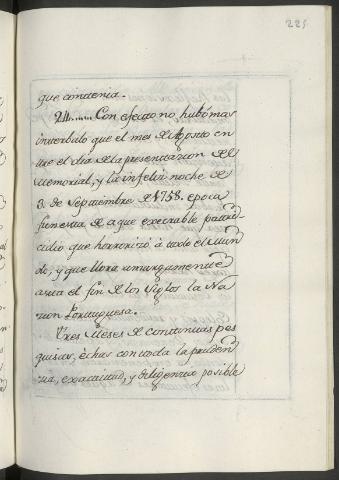 225
que convenia.
24...... Con efecto no hubo mas
intervalo que el mes de Agosto en
tre el dia de la presentazion del
Memorial, y la infeliz noche de
3. de Septiembre de 1758. epoca
funesta de aque execrable parri
cidio que horrorizó à todo el Mun
do, y que llora amargamente
asta el fin de los siglos la Na
zion Portuguesa.
Tres Meses de continuas pes
quisas, echas con toda la pruden
zia, exactitud, y diligencia posible